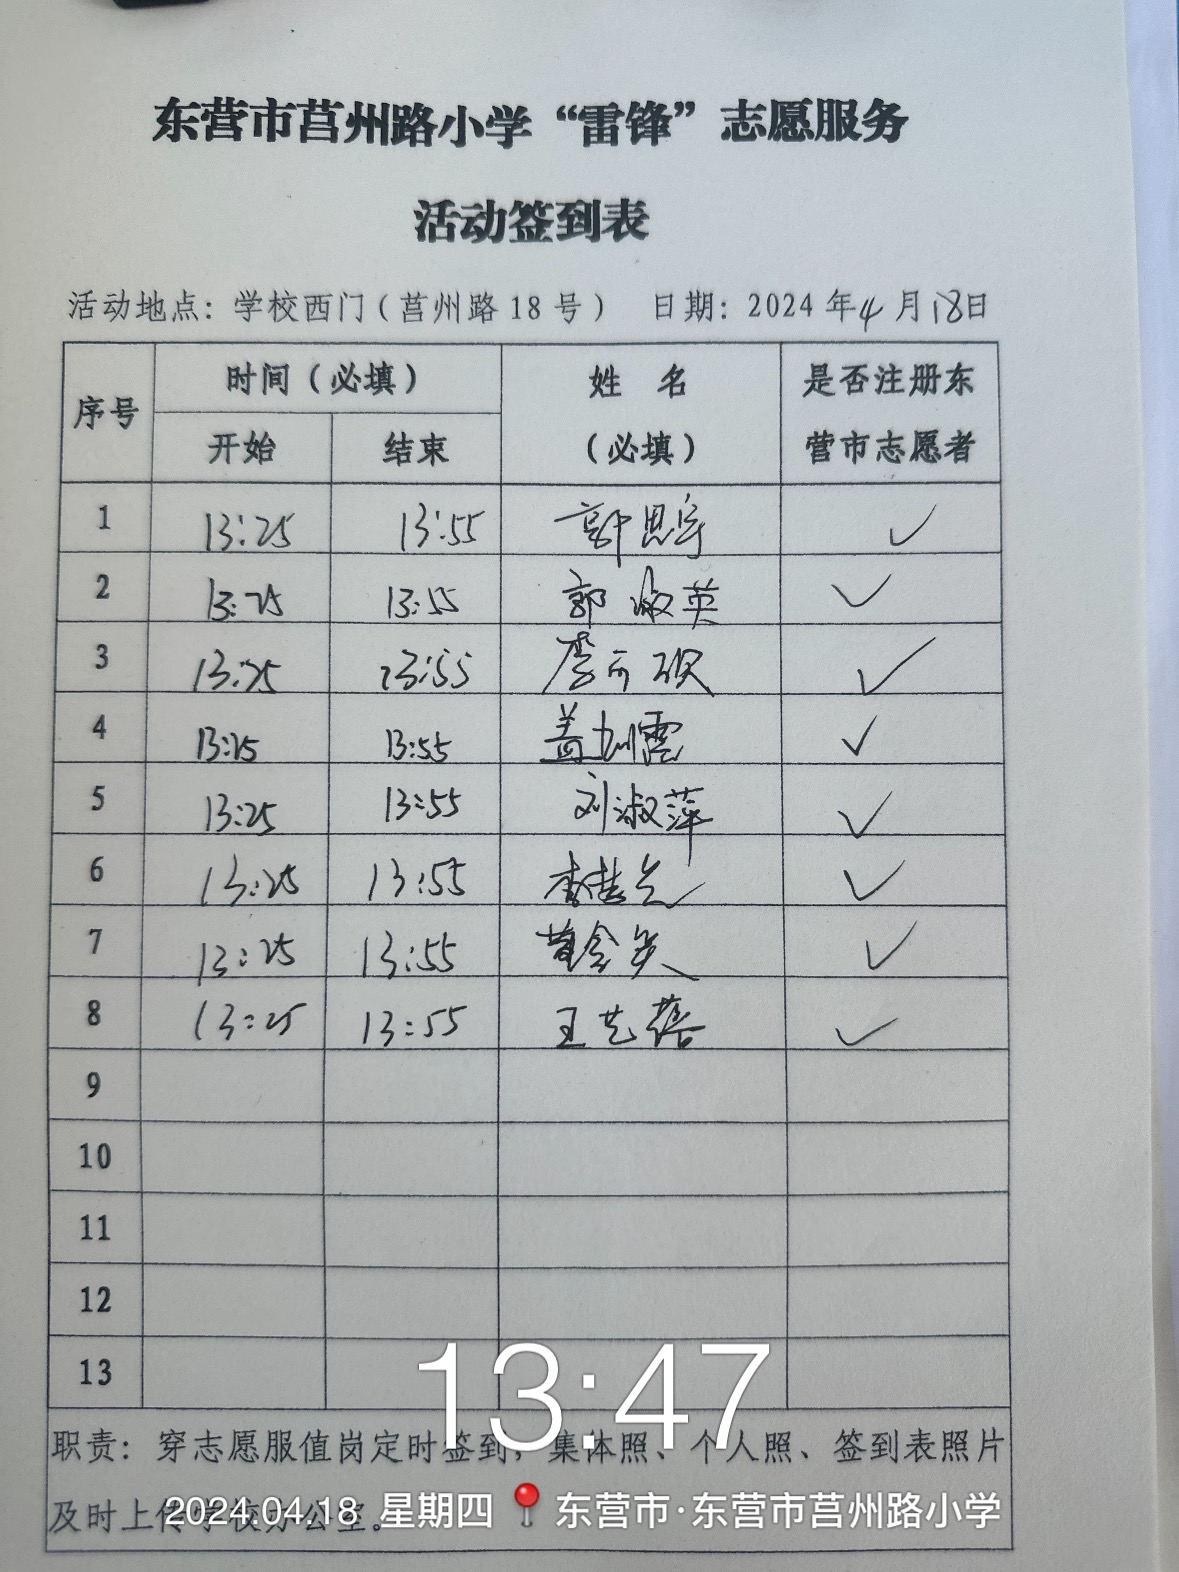 东营市莒州路小学“雷锋”志愿服务
活动签到表
活动地点：学校西门（莒州路18号） 日期：2024年4月18日
序号 时间（必填） 姓 名 是否注册东
开始 结束 （必填） 营市志愿者
1 13:25 13:55 思宇 ✓
2 13:25 13:55 郭淑英 ✓
3 13:25 13:55 李 硕 ✓
4 13:25 13:55 盖 霞 ✓
5 13:25 13:55 刘淑萍 ✓
6 13:25 13:55 李 ✓
7 13:25 13:55 黄 英 ✓
8 13:25 13:55 王艺蓓 ✓
9
10
11
12
13
13:47
职责：穿志愿服值岗定时签到，集体照、个人照、签到表照片
及时上传学校办公室。
2024.04.18 星期四 东营市·东营市莒州路小学